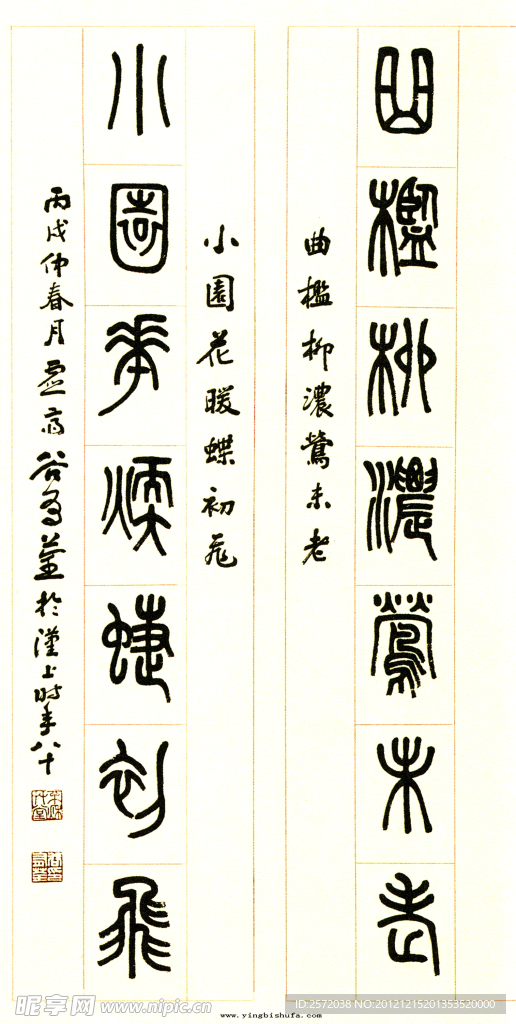 曲檻柳濃鶯未老
曲檻柳濃鶯未老
小園花暖蝶初飛
小園華煗蜨初飛
丙戌仲春月 於漢上時年八十
昵享网 www.nipic.cn
ID:2572038 NO:20121215201353520000
www.yingbishufa.com